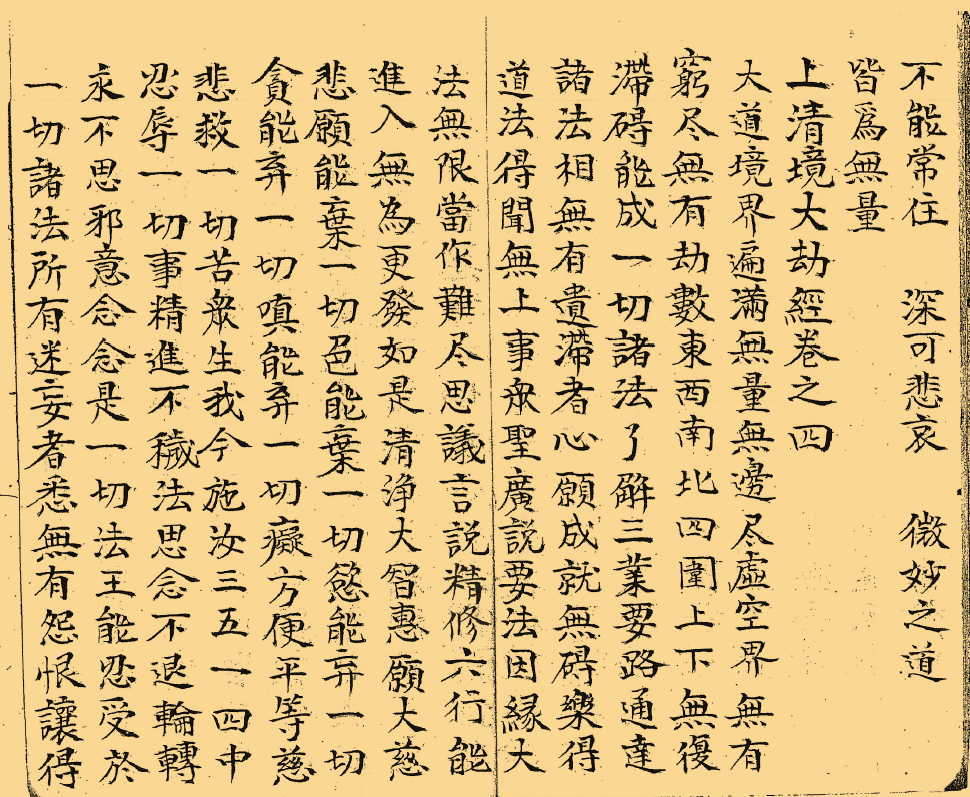 不能常住　深可悲哀　微妙之道
皆爲無量
上清境大劫經卷之四
大道境界遍滿無量無邊尽虛空界無有
窮尽無有劫數東西南北四圍上下無復
滯碍能成一切諸法了解三業要路通達
諸法相無有遺滯者心願成就無碍樂得
道法得聞無上事衆聖廣説要法因縁大
法無限當作難尽思議言説精修六行能
進入無為更發如是清浄大智惠願大慈
悲願能棄一切色能棄一切慾能弃一切
貪能弃一切嗔能弃一切癡方便平等慈
悲救一切苦衆生我今施汝三五一四中
忍辱一切事精進不穢法思念不退輪轉
永不思邪意念念是一切法王能忍受於
一切諸法所有迷妄者悉無有怨恨讓得